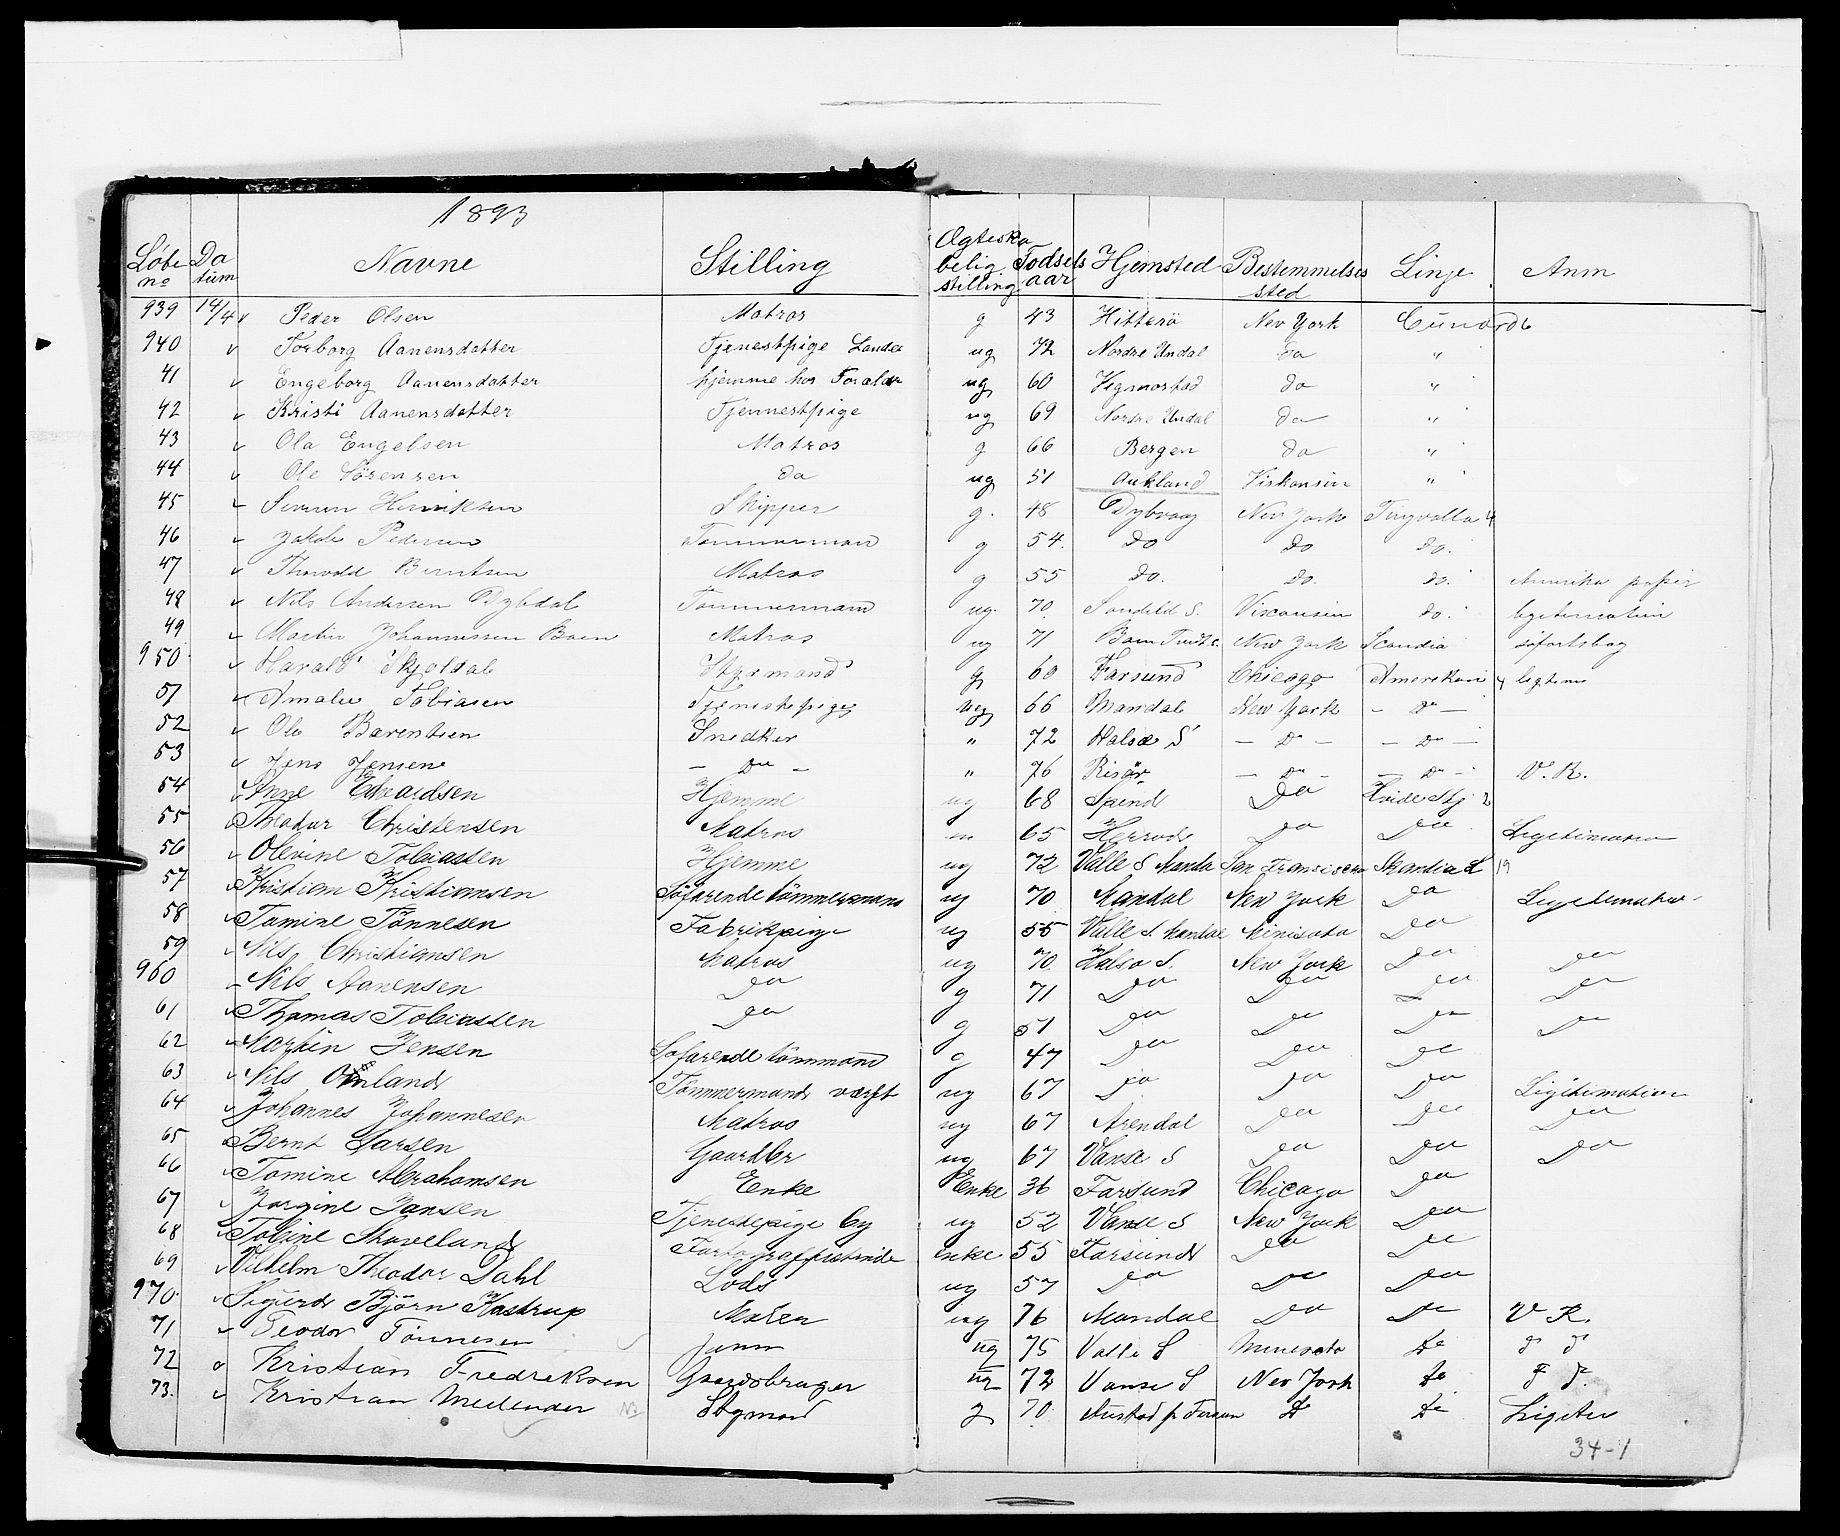 1893
Løbe no Da tum Navne Stilling Ægteska belig. stilling Fødsels aar Hjemsted Bestemmelses sted Linje Anm
939 14/4 Peder Olsen Matros g 43 Hitterø New York Cunard 6
940 Torborg Aanensdatter Tjenestpige Landet ug 72 Nordre Undal do "
41 Engeborg Aanensdatter hjemme hos Foraldr ug 60 Hegmostad do "
42 Kristi Aanensdatter Tjennestpige ug 69 Nordre Undal do "
43 Ola Engelsen Matros g 66 Bergen do "
44 Ole Sørensen do ug 51 Aukland Viskonsin "
45 Severin Henriksen Skipper g. 48 Dybvaag New York Tingvalla 4
46 Jakob Pedersen Tømmermand g 54. do do do.
47 Thorvald Berntsen Matros g 55 do. do. do. Amerika papir
48 Nils Andersen Dybdal Tømmermand ug. 70. S. Visconsin do. legitimation
49 Martin Johannessen Boen Matros ug 71 Boen New York Scandia søfartsbog
950. Harald Skjoldal Styrmand g 60 Farsund Chicago Amerikan 4
51 Amalie Tobiasen Tjenestepige ug 66 Mandal New York - Do -
52 Ole Barentsen Snedker " 72 Halse S - Do - - Do -
53 Jens Jensen - Do - " 76 Risør - Do - - Do - V. R.
54 Anne Edvardsen Hjemme ug 68 Spind Do Hvide Stj 2
55 Theodor Christensen Matros 65 Do Do Legitimation
56 Olevine Tobiassen Hjemme ug 72 Valle S Manda San Fransisco Skandia 19
57 Kristian Kristiansen Søfarende tømmermans ug 70 Mandal New York Do Legitimation
58 Tomine Tønnesen Fabrikpige ug 55 Valle S. Mandal Minisota Do
59 Nils Christiansen Matros ug 70. Halso S. New York Do Do
960 Nils Aanensen Do g 71 Do Do Do Do
61 Thomas Tobiassen Do g 51 Do Do Do Do
62 Martin Jensen Søfarende tømmand g 47 Do Do Do
63 Nils Omland Tømmermands værft ug 67 Do Do Do Legitimation
64 Johannes Johannesen Matros ug 67 Arendal Do Do Do
65 Bernt Larsen Gaardbr ug 67 Vanse S Do Do Do
66 Tomine Abrahamsen Enke Enke 36 Farsund Chicago Do
67 Jørgine Jansen Tjenestepige by ug 52 Vanse S New York Do
68 Tobine Skaveland enke 55 Farsund Do Do
69 Vilhelm Theodor Dahl Lods ug 57 Do Do Do
970. Sigurd Bjørn Kastrup ug 76 Mandal Do Do V R.
71 Teodor Tønnesen ug 75 Valle S Minesota Do d d
72 Kristian Fredreksen Gaardsbruger ug 72 Vanse S New York Do d d.
73. Kristian Styrmand g 70. Do Do
34-1